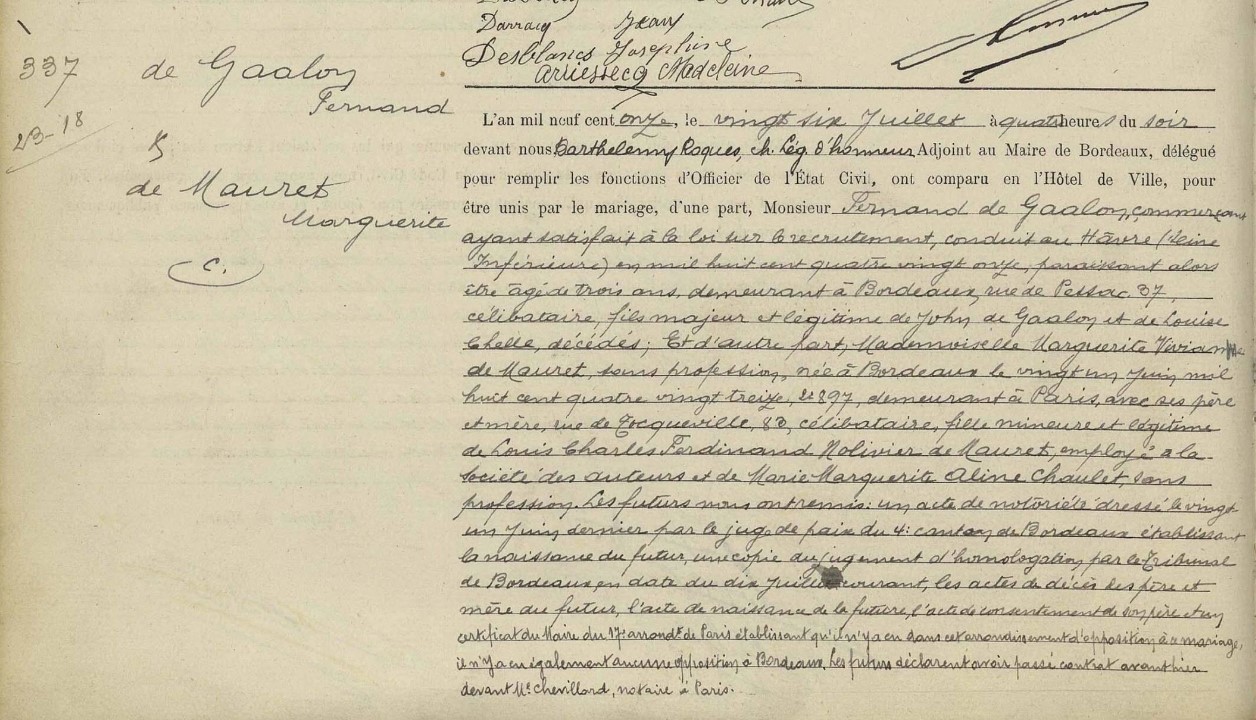 Darracq Jean
Desblancs Josephine
Arriessecq Madeleine
337 de Gaalon
Fernand
23-18
&
de Mauret
Marguerite
C.
L'an mil neuf cent onze, le vingt six Juillet à quatre heures du soir
devant nous Barthelemy Roques, ch. Lég. d'honneur Adjoint au Maire de Bordeaux, délégué
pour remplir les fonctions d'Officier de l'État Civil, ont comparu en l'Hôtel de Ville, pour
être unis par le mariage, d'une part, Monsieur Fernand de Gaalon, commerçant
ayant satisfait à la loi sur le recrutement, conduit au Hâvre (Seine
Inférieure) en mil huit cent quatre vingt onze, paraissant alors
être âgé de trois ans, demeurant à Bordeaux, rue de Pessac. 37,
célibataire, fils majeur et légitime de John de Gaalon et de Louise
Chelle, décédés; Et d'autre part, Mademoiselle Marguerite Vivianne
de Mauret, sans profession, née à Bordeaux le vingt un Juin mil
huit cent quatre vingt treize, demeurant à Paris, avec ses père
et mère, rue de Tocqueville, 83, célibataire, fille mineure et légitime
de Louis Charles Ferdinand Nolivier de Mauret, employé à la
Société des auteurs et de Marie Marguerite Aline Chaulet, sans
profession. Les futurs nous ont remis: un acte de notoriété dressé le vingt
un Juin dernier par le juge de paix du 4e canton de Bordeaux établissant
la naissance du futur, une copie du jugement d'homologation par le Tribunal
de Bordeaux en date du dix Juillet courant, les actes de décès des père et
mère du futur, l'acte de naissance de la future, l'acte de consentement de son père et un
certificat du Maire du 17e arrondt de Paris établissant qu'il n'y a eu dans cet arrondissement d'opposition à ce mariage,
il n'y a eu également aucune opposition à Bordeaux. Les futurs déclarent avoir passé contrat avant hier
devant Me Chevillard, notaire à Paris.